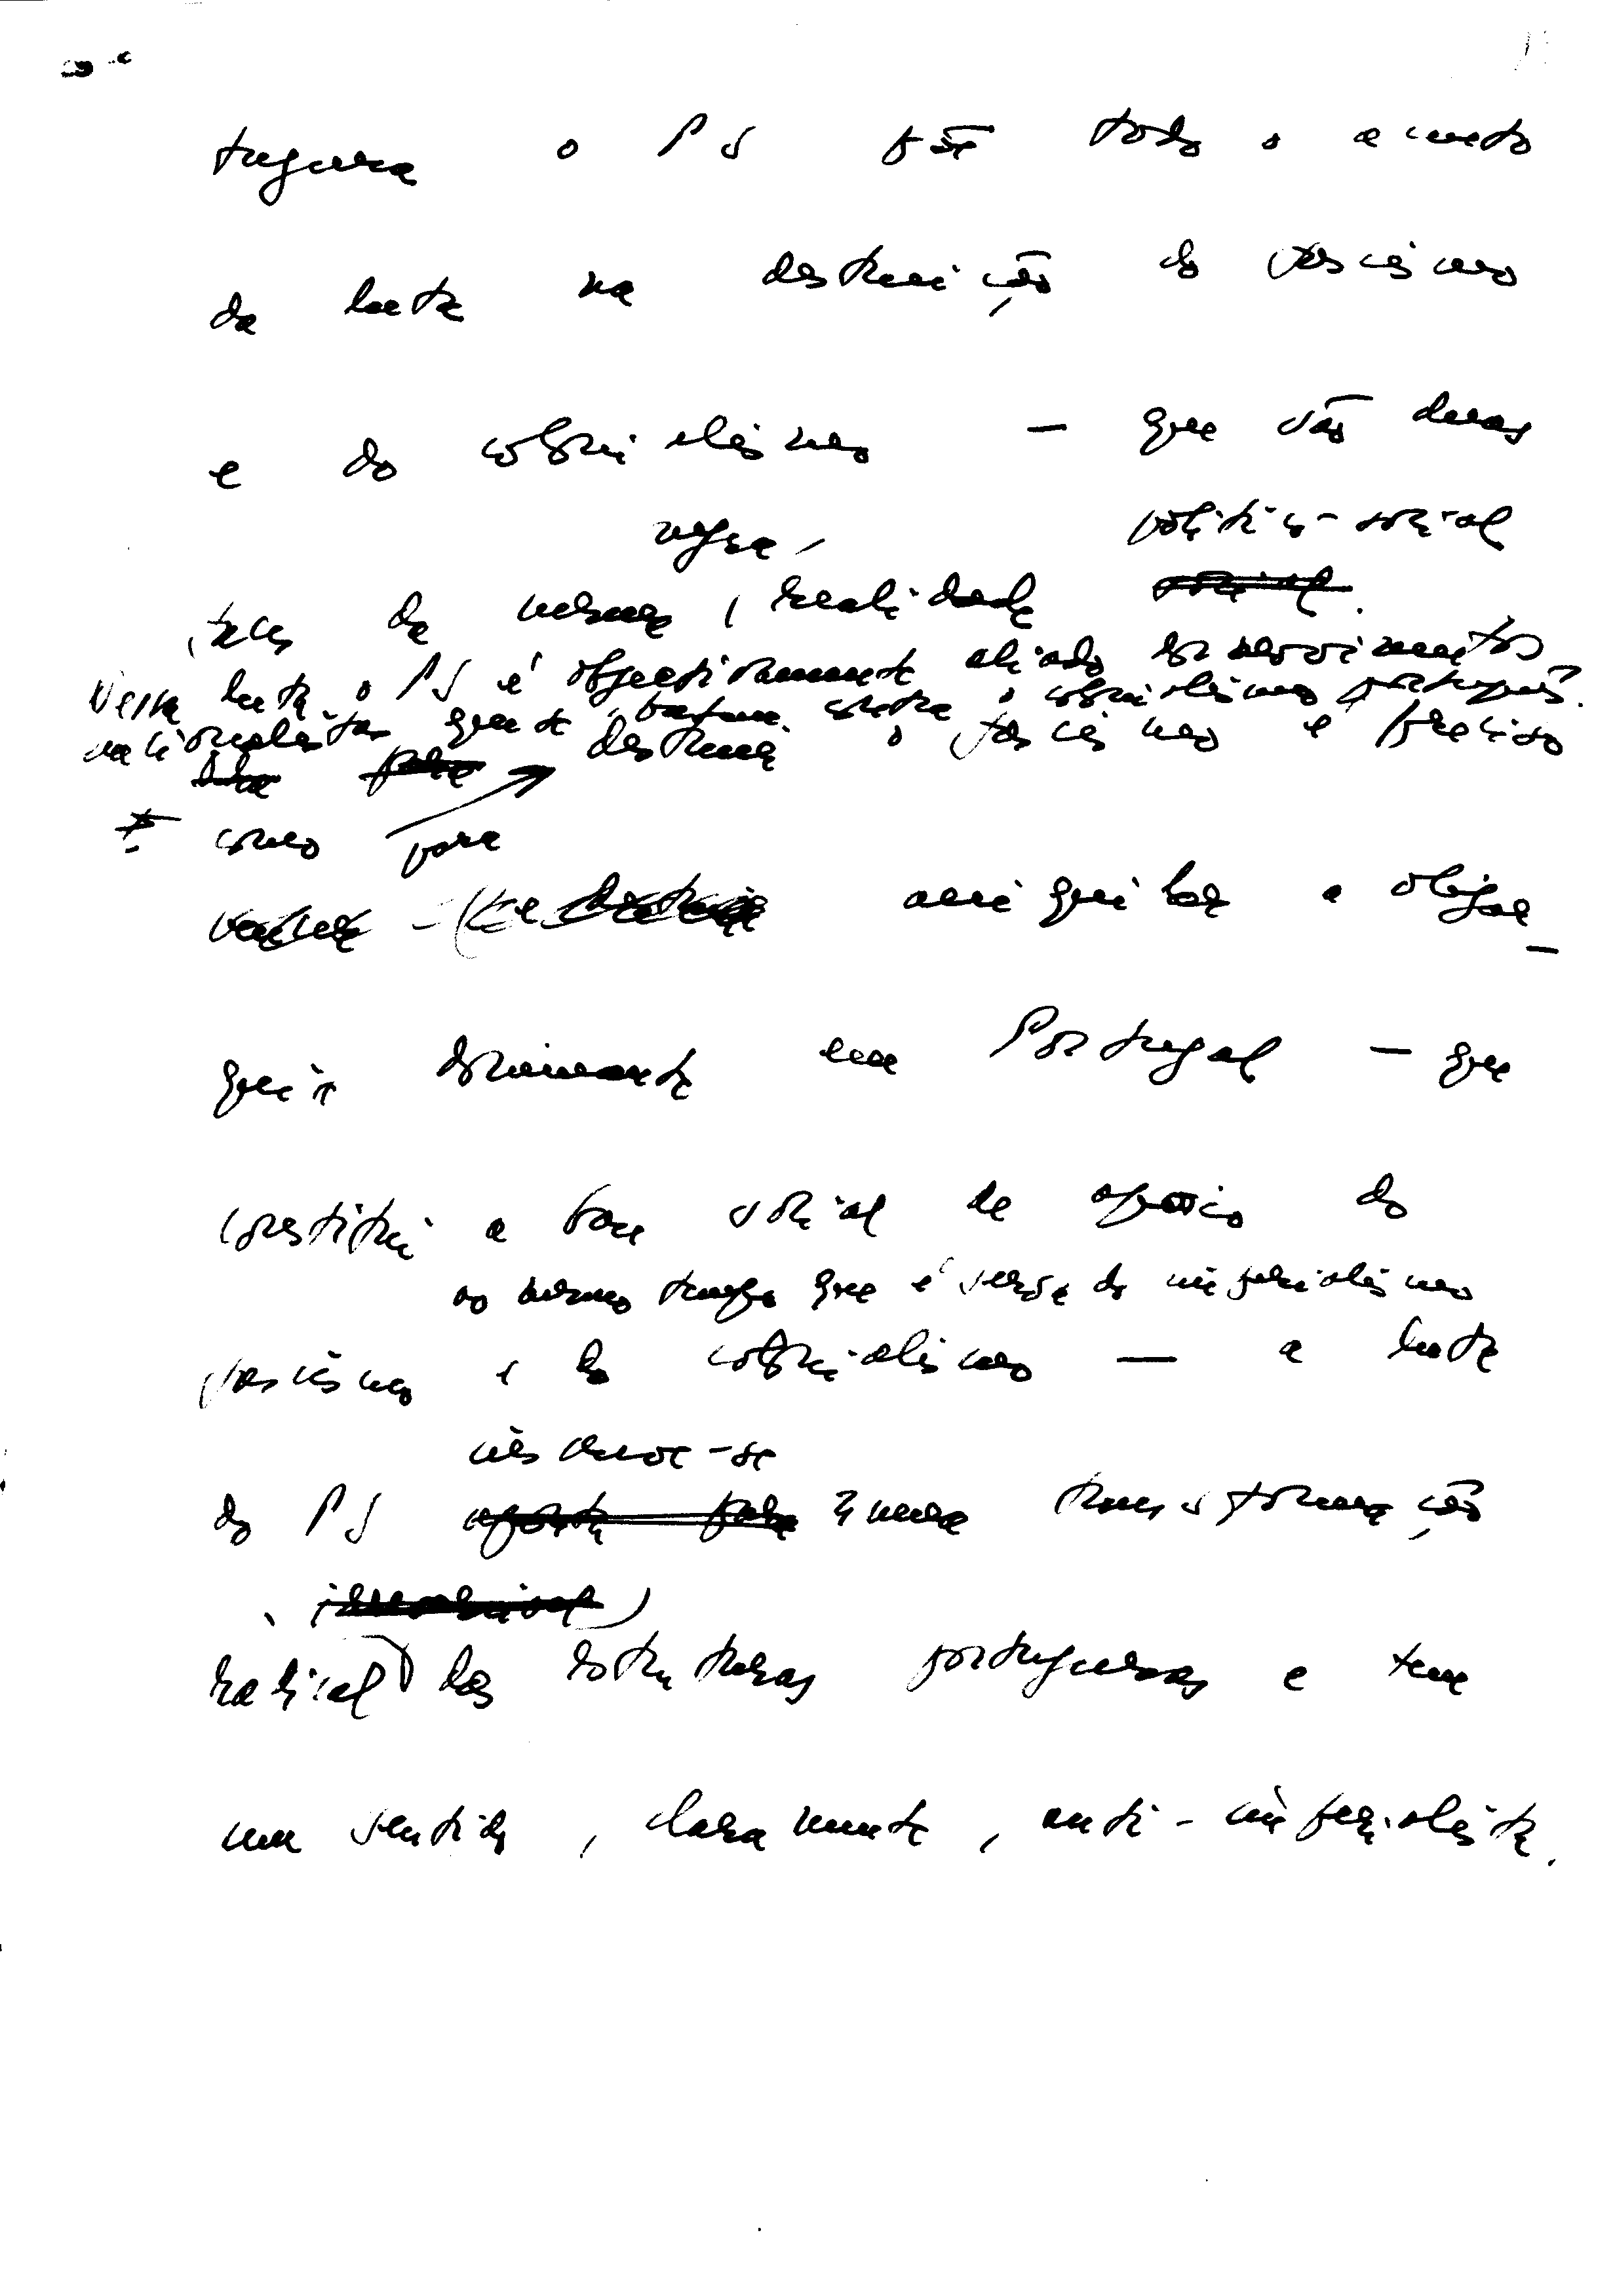 tuguesa o PS põe todo o acento
da luta na destruição do fascismo
e do colonialismo — que são duas
negra, político-social
faces da mesma realidade social.
Nesta luta o PS é objectivamente aliado dos movimentos
nacionalistas que se batem contra o colonialismo português.
destruir o fascismo é preciso
Como para
aniquilar a oligar-
quia dominante em Portugal — que
constitui a base social de apoio do
ao mesmo tempo que é serva do imperialismo
fascismo e do colonialismo — a luta
inscreve-se
do PS aponta para numa transformação
radical das estruturas portuguesas e tem
um sentido, claramente, anti-imperialista.